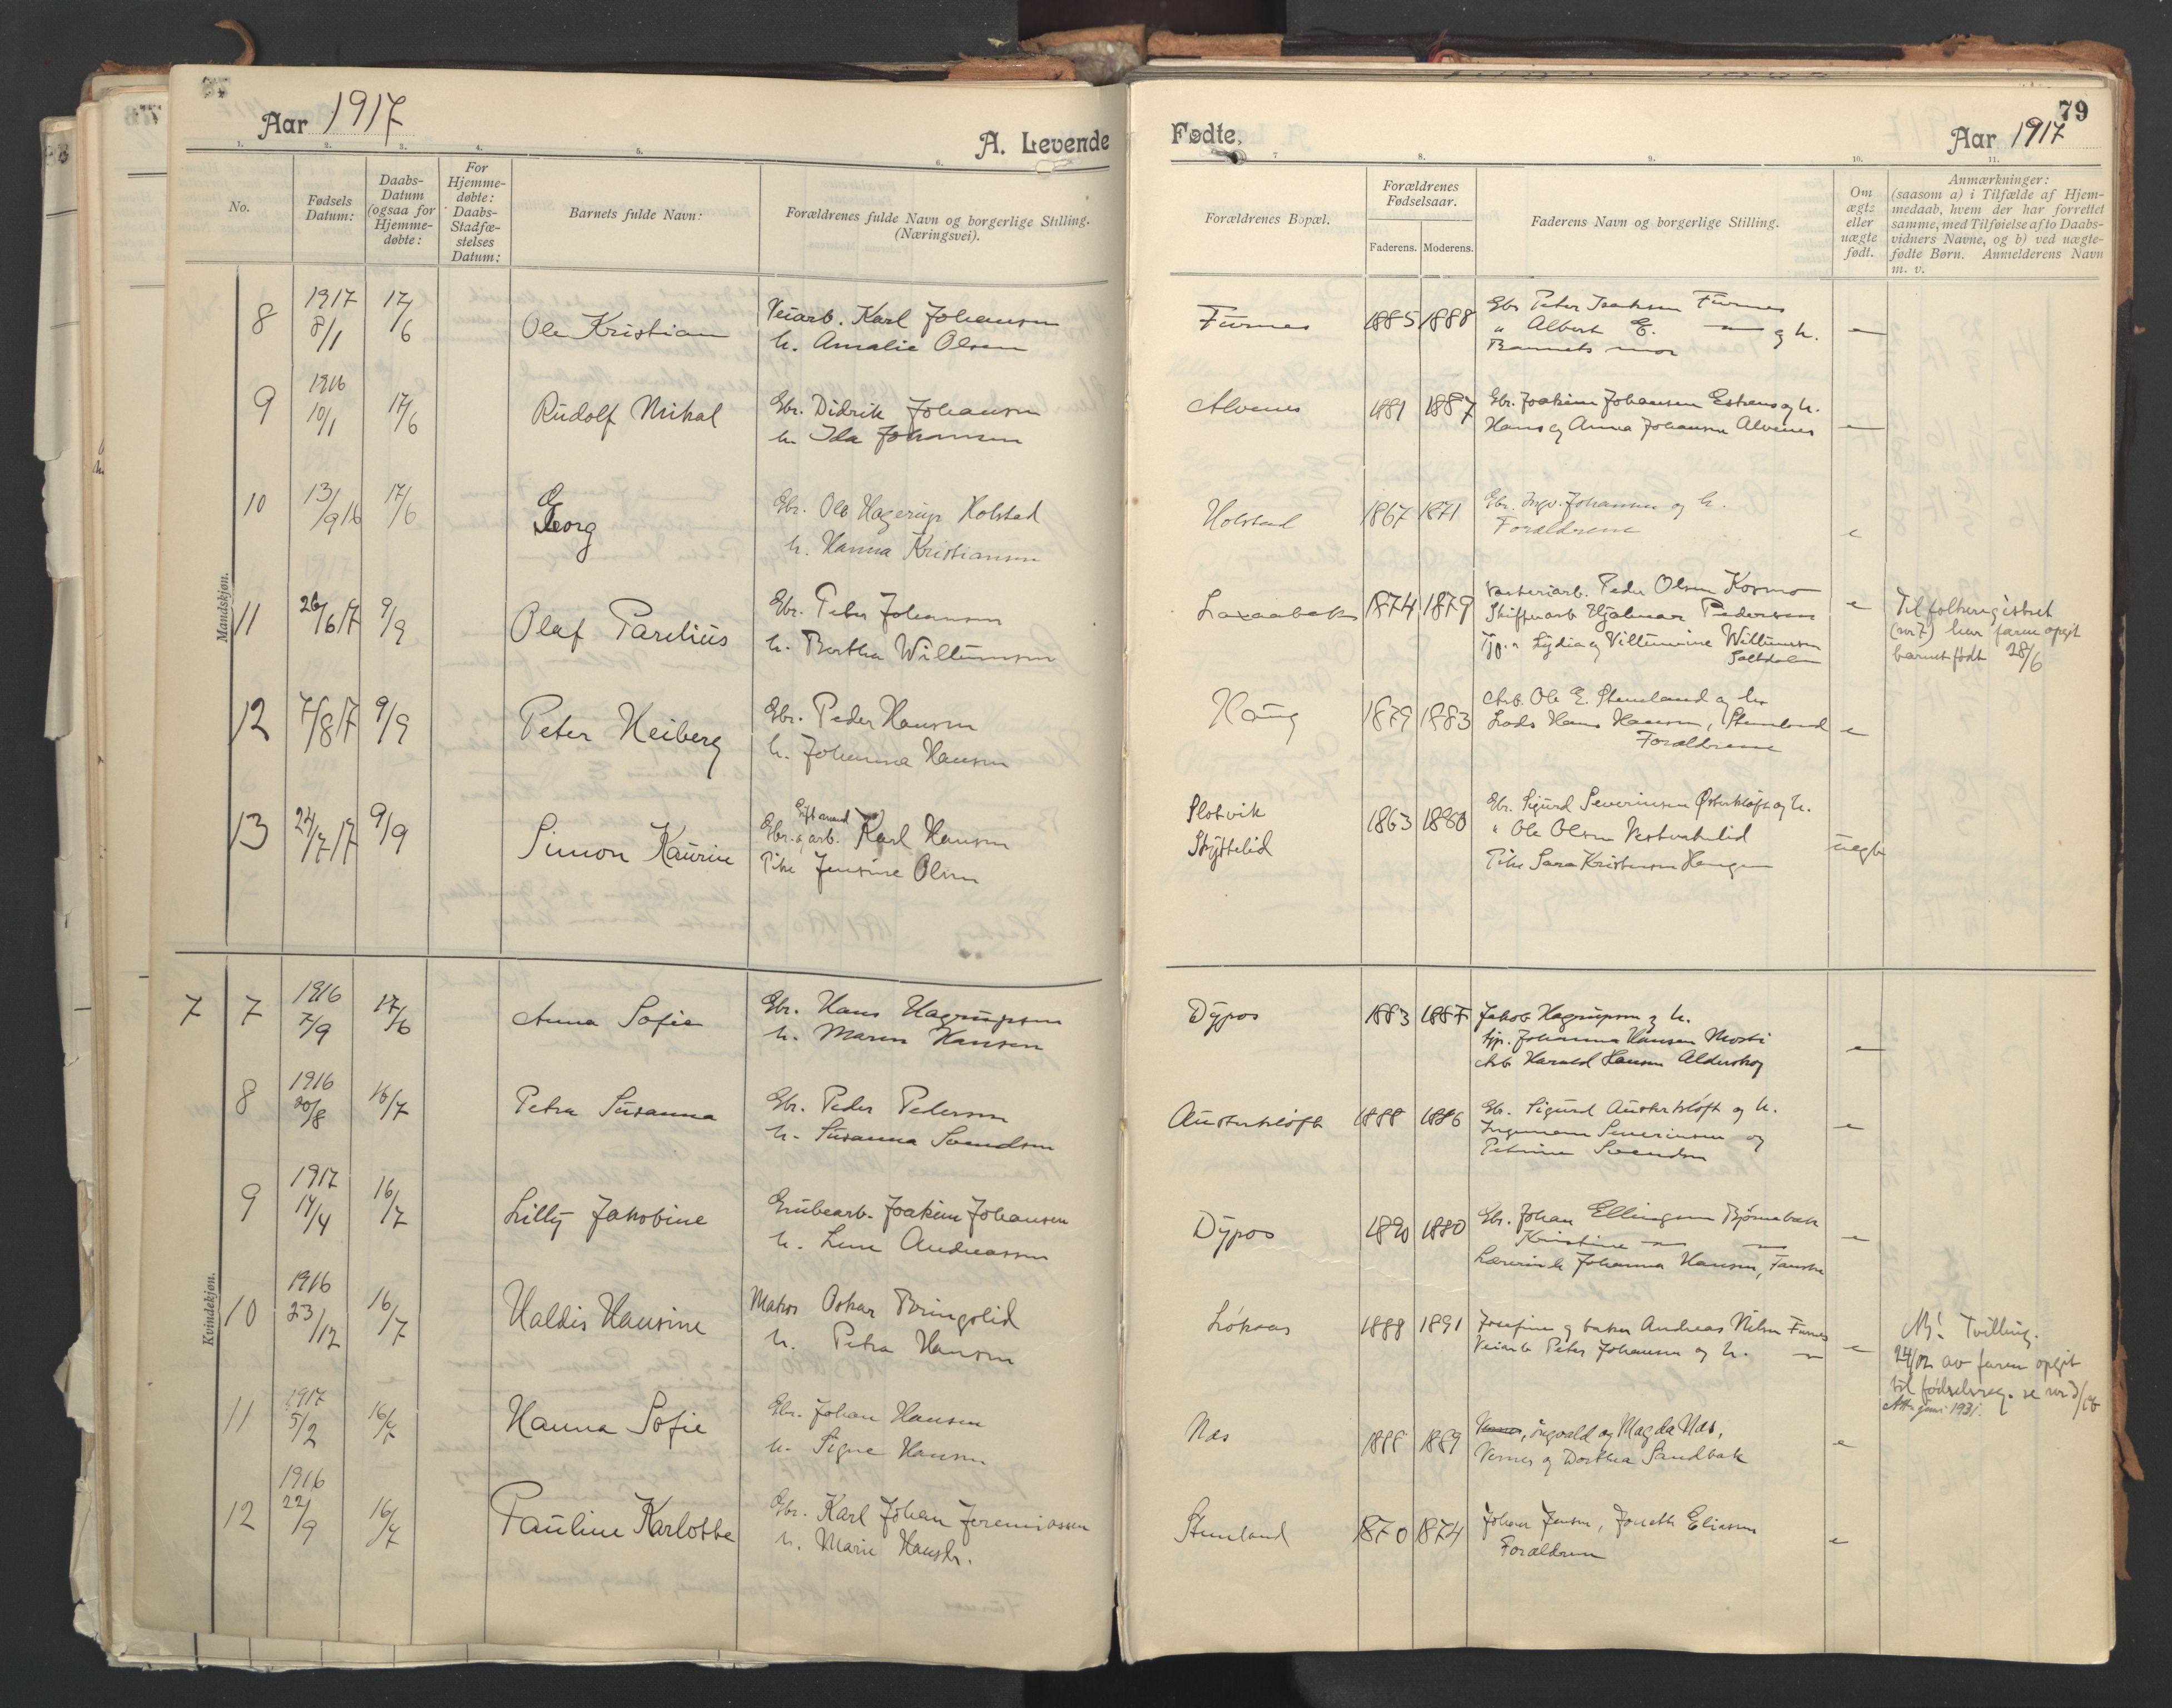 Aar 1917
A. Levende
1. 2. 3. 4. 5. 6.
No.
Fødsels Datum:
Daabs-Datum (ogsaa for Hjemme-døbte:
For Hjemme-døbte: Daabs-Stadfæ-stelses Datum:
Barnets fulde Navn:
Forældrenes fulde Navn og borgerlige Stilling.
(Næringsvei).
Mandskjøn.
8 1917 8/1 17/6 Ole Kristian Veiarb. Karl Johansen
h. Amalie Olsen
9 1916 10/1 17/6 Rudolf Mikal Gbr. Didrik Johansen
h. Ida Johansen
10 13/9 16 17/6 Georg Gbr. Ole Hagerup Holstad
h. Hanna Kristiansen
11 26/6 17 9/9 Olaf Parelius Gbr. Peter Johansen
h. Bertha Willumsen
12 7/8 17 9/9 Peter Heiberg Gbr. Peder Hansen
h. Johanna Hansen
13 24/7 17 9/9 Simon Kaurin Gift mand
Gbr. & arb. Karl Hansen
Pike Jensine Olsen
Kvindekjøn.
7 7 1916 7/9 17/6 Anna Sofie Gbr. Hans Hagrupsen
h. Maren Hansen
8 1916 20/8 16/7 Petra Susanna Gbr. Peder Pedersen
h. Susanna Svendsen
9 1917 14/4 16/7 Lilly Jakobine Grubearb. Joakim Johansen
h. Lene Andreassen
10 1916 23/12 16/7 Haldis Hansine Matros Oskar Bringslid
h. Petra Hansen
11 1917 5/2 16/7 Hanna Sofie Gbr. Johan Hansen
h. Signe Hansen
12 1916 22/9 16/7 Pauline Karlotte Gbr. Karl Johan Jeremiassen
h. Marie Hansdr.
79
Fødte.
Aar 1917
7 8. 9. 10. 11.
Forældrenes Bopæl.
Forældrenes Fødselsaar.
Faderens. Moderens.
Faderens Navn og borgerlige Stilling.
Om ægte eller uægte født.
Anmærkninger:
(saasom a) i Tilfælde af Hjem-
medaab, hvem der har forrettet
samme, med Tilføielse af to Daabs-
vidners Navne, og b) ved uægte-
fødte Børn. Anmelderens Navn
m. v.
Furnes 1885 1888 Gbr Peter Isaksen Furnes
" Albert E. — og h.
Barnets mor
Alvenes 1881 1887 Gbr. Joakim Johansen og h.
Hans og Anna Johansen Alvenes
Holstad 1867 1871 Gbr. Ingv. Johansen og h.
Forældrene e
Laxaabak 1874 1879 Peder Olsen Kosmo
Hjalmar Pedersen
Tjp. Lydia og Willumsen
Saltdalen e
Til folkeregistret
(nr 7) har faren opgit
barnet født 28/6
Haug 1879 1883 Arb. Ole E. Stemland og h.
Hans Hansen, Stemland
Forældrene e
Slotvik
Skjstelid 1863 1880 Gbr. Sigurd Severinsen Østerkløft og h.
" Ole Olsen
Pike Sara Kristensen Haugen uegte
Dypos 1883 1887 Jakob Hagrupsen og h.
tjp. Johanna Hansen
Arb Harald Hansen Alderskog
Austerkløft 1888 1886 Gbr. Sigurd Austerkløft og h.
Severinsen og
Petrine Svendsen
Dypos 1890 1880 Gbr. Johan Ellingsen Bjørnebak
Kristine — —
Lærerinde Johanna Hansen, Fauske
Løkaas 1888 1891 Josefine og baker Andreas Nilsen Furnes
Veiarb Peter Johansen og h. —
NB! Tvilling.
24/12 av faren opgit
til fødselsreg. se nr 3/16
juni 1931.
Næs 1888 1889 Ingvald og Magda Næs,
Verner og Dorthea Sandbak e
Stemland 1870 1874 Johan Jensen, Eliassen
Forældrene e